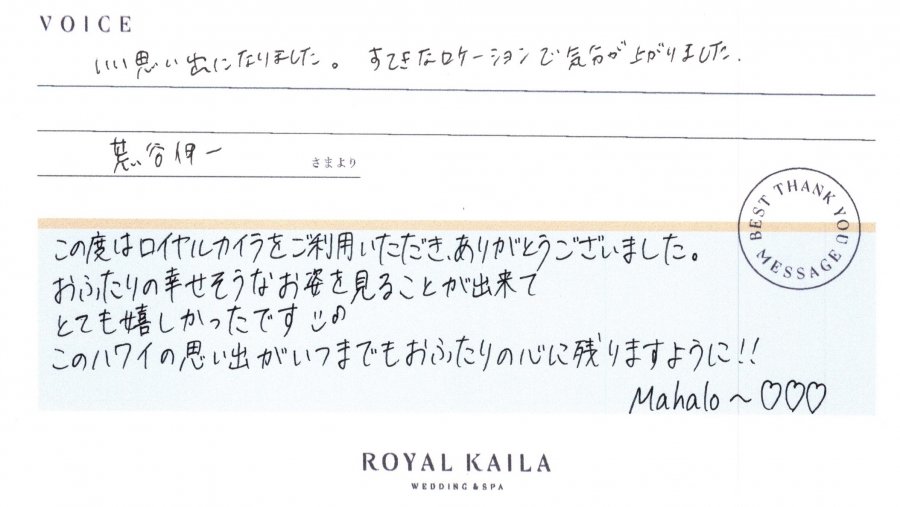 VOICE
いい思い出になりました。 すてきなロケーションで気分が上がりました.
荒谷伊一
さまより
BEST THANK YOU MESSAGE
この度はロイヤルカイラをご利用いただき、ありがとうございました。
おふたりの幸せそうなお姿を見ることが出来て
とても嬉しかったです
このハワイの思い出がいつまでもおふたりの心に残りますように!!
Mahalo～♡♡♡
ROYAL KAILA
WEDDING & SPA